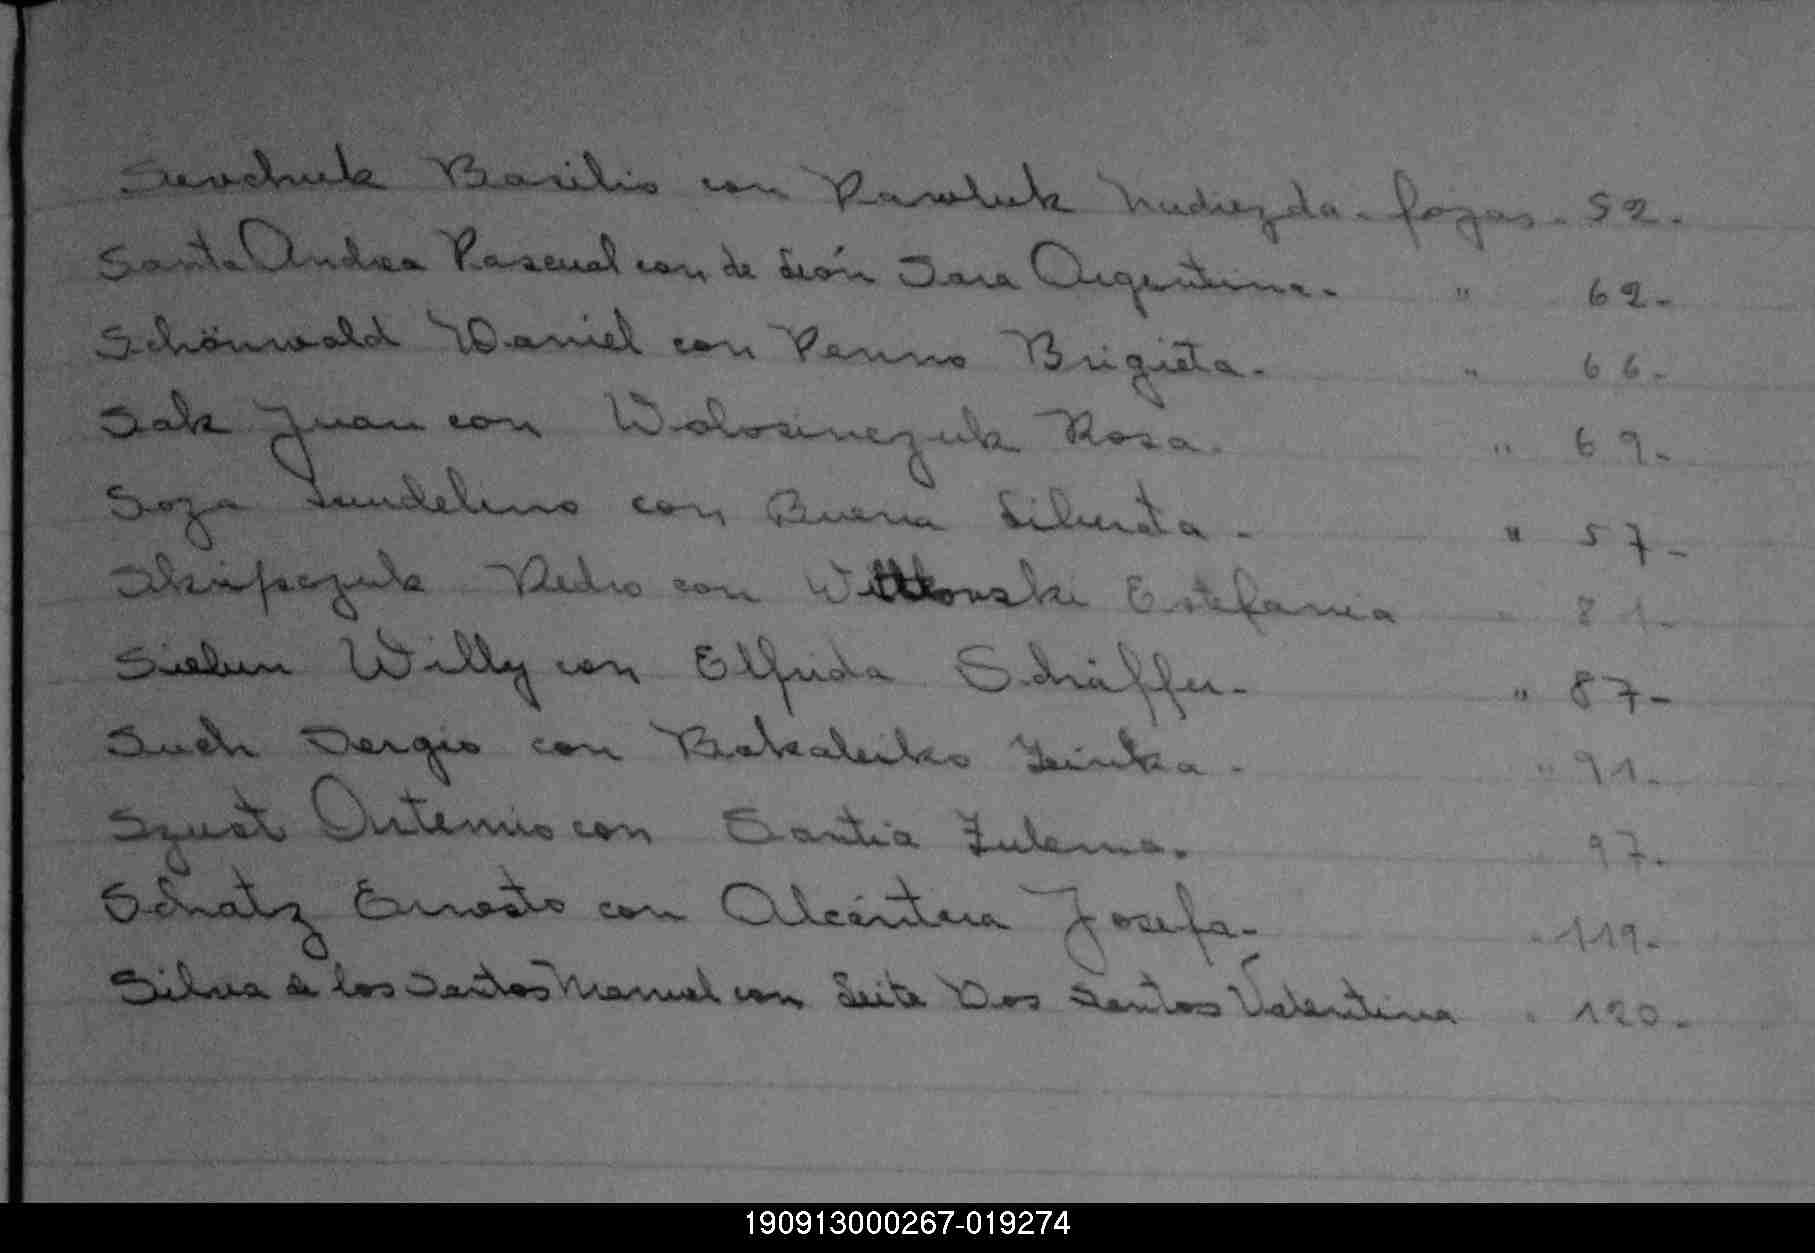 Sevchuk Basilio con Pawluk Nadiezda. fojas. 52.
Santa Andrea Pascual con de León Sara Argentina. " 62-
Schönwald Daniel con Penno Brigieta. " 66.
Sak Juan con Wolosinczuk Rosa. " 69-
Soza Lundelino con Buena Liberata. " 57-
Skripczuk Pedro con Wittkowski Estefania " 81-
Sieben Willy con Elfrida Schäffer. " 87-
Such Sergio con Bakaleiko Zeinka. " 91-
Szust Artemio con Sartia Zulema. " 97.
Schatz Ernesto con Alcántara Josefa- " 119-
Silva de los Santos Manuel con Leite Dos Santos Valentina " 120-
190913000267-019274